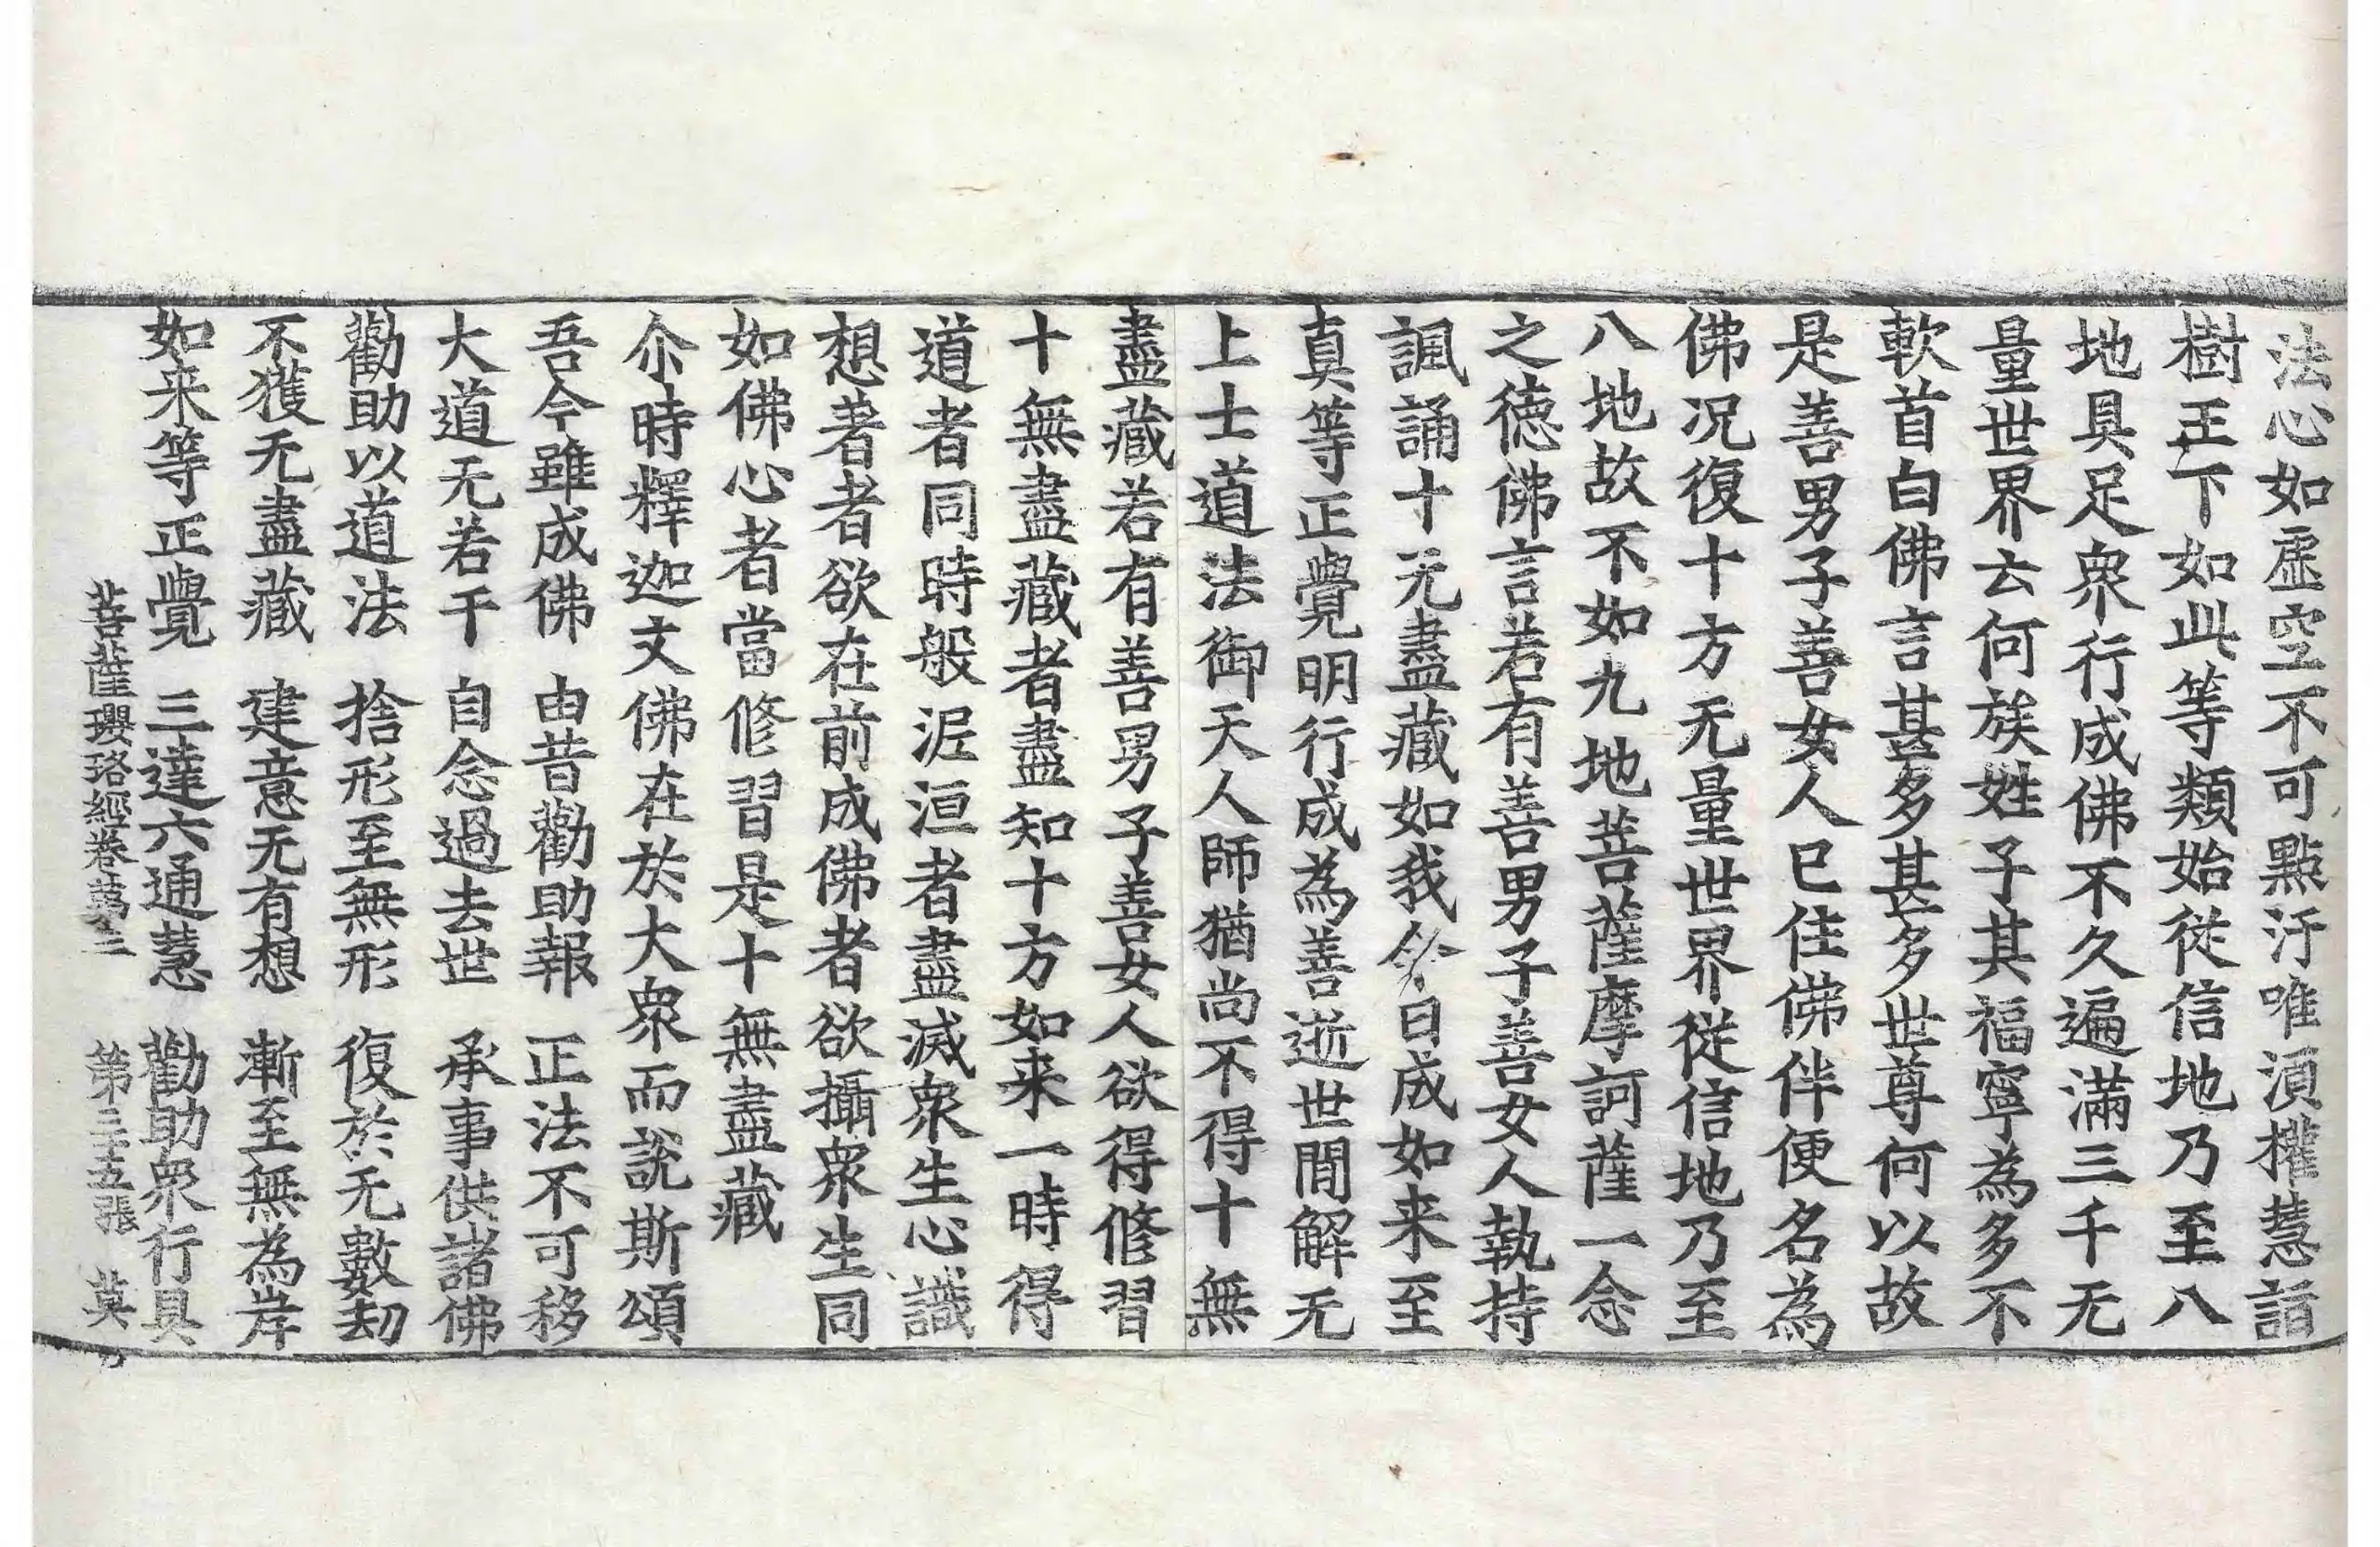 法心如虛空不可點汙唯湏權慧詣
樹王下如此等類始從信地乃至八
地具足衆行成佛不久遍滿三千无
量世界云何族姓子其福寧為多不
軟首白佛言甚多甚多世尊何以故
是善男子善女人已住佛伴便名為
佛況復十方无量世界從信地乃至
八地故不如九地菩薩摩訶薩一念
之德佛言若有善男子善女人執持
諷誦十无盡藏如我今日成如来至
真等正覺明行成為善逝世間解无
上士道法御天人師猶尚不得十無
盡藏若有善男子善女人欲得修習
十無盡藏者盡知十方如来一時得
道者同時般泥洹者盡滅衆生心識
想著者欲在前成佛者欲攝衆生同
如佛心者當修習是十無盡藏
尒時釋迦文佛在於大衆而說斯頌
吾今雖成佛　由昔勸助報　正法不可移
大道无若干　自念過去世　承事供諸佛
勸助以道法　捨形至無形　復於无數劫
不獲无盡藏　建意无有想　漸至無為岸
如来等正覺　三達六通慧　勸助衆行具
菩薩瓔珞經卷第三　第三十五張　莫